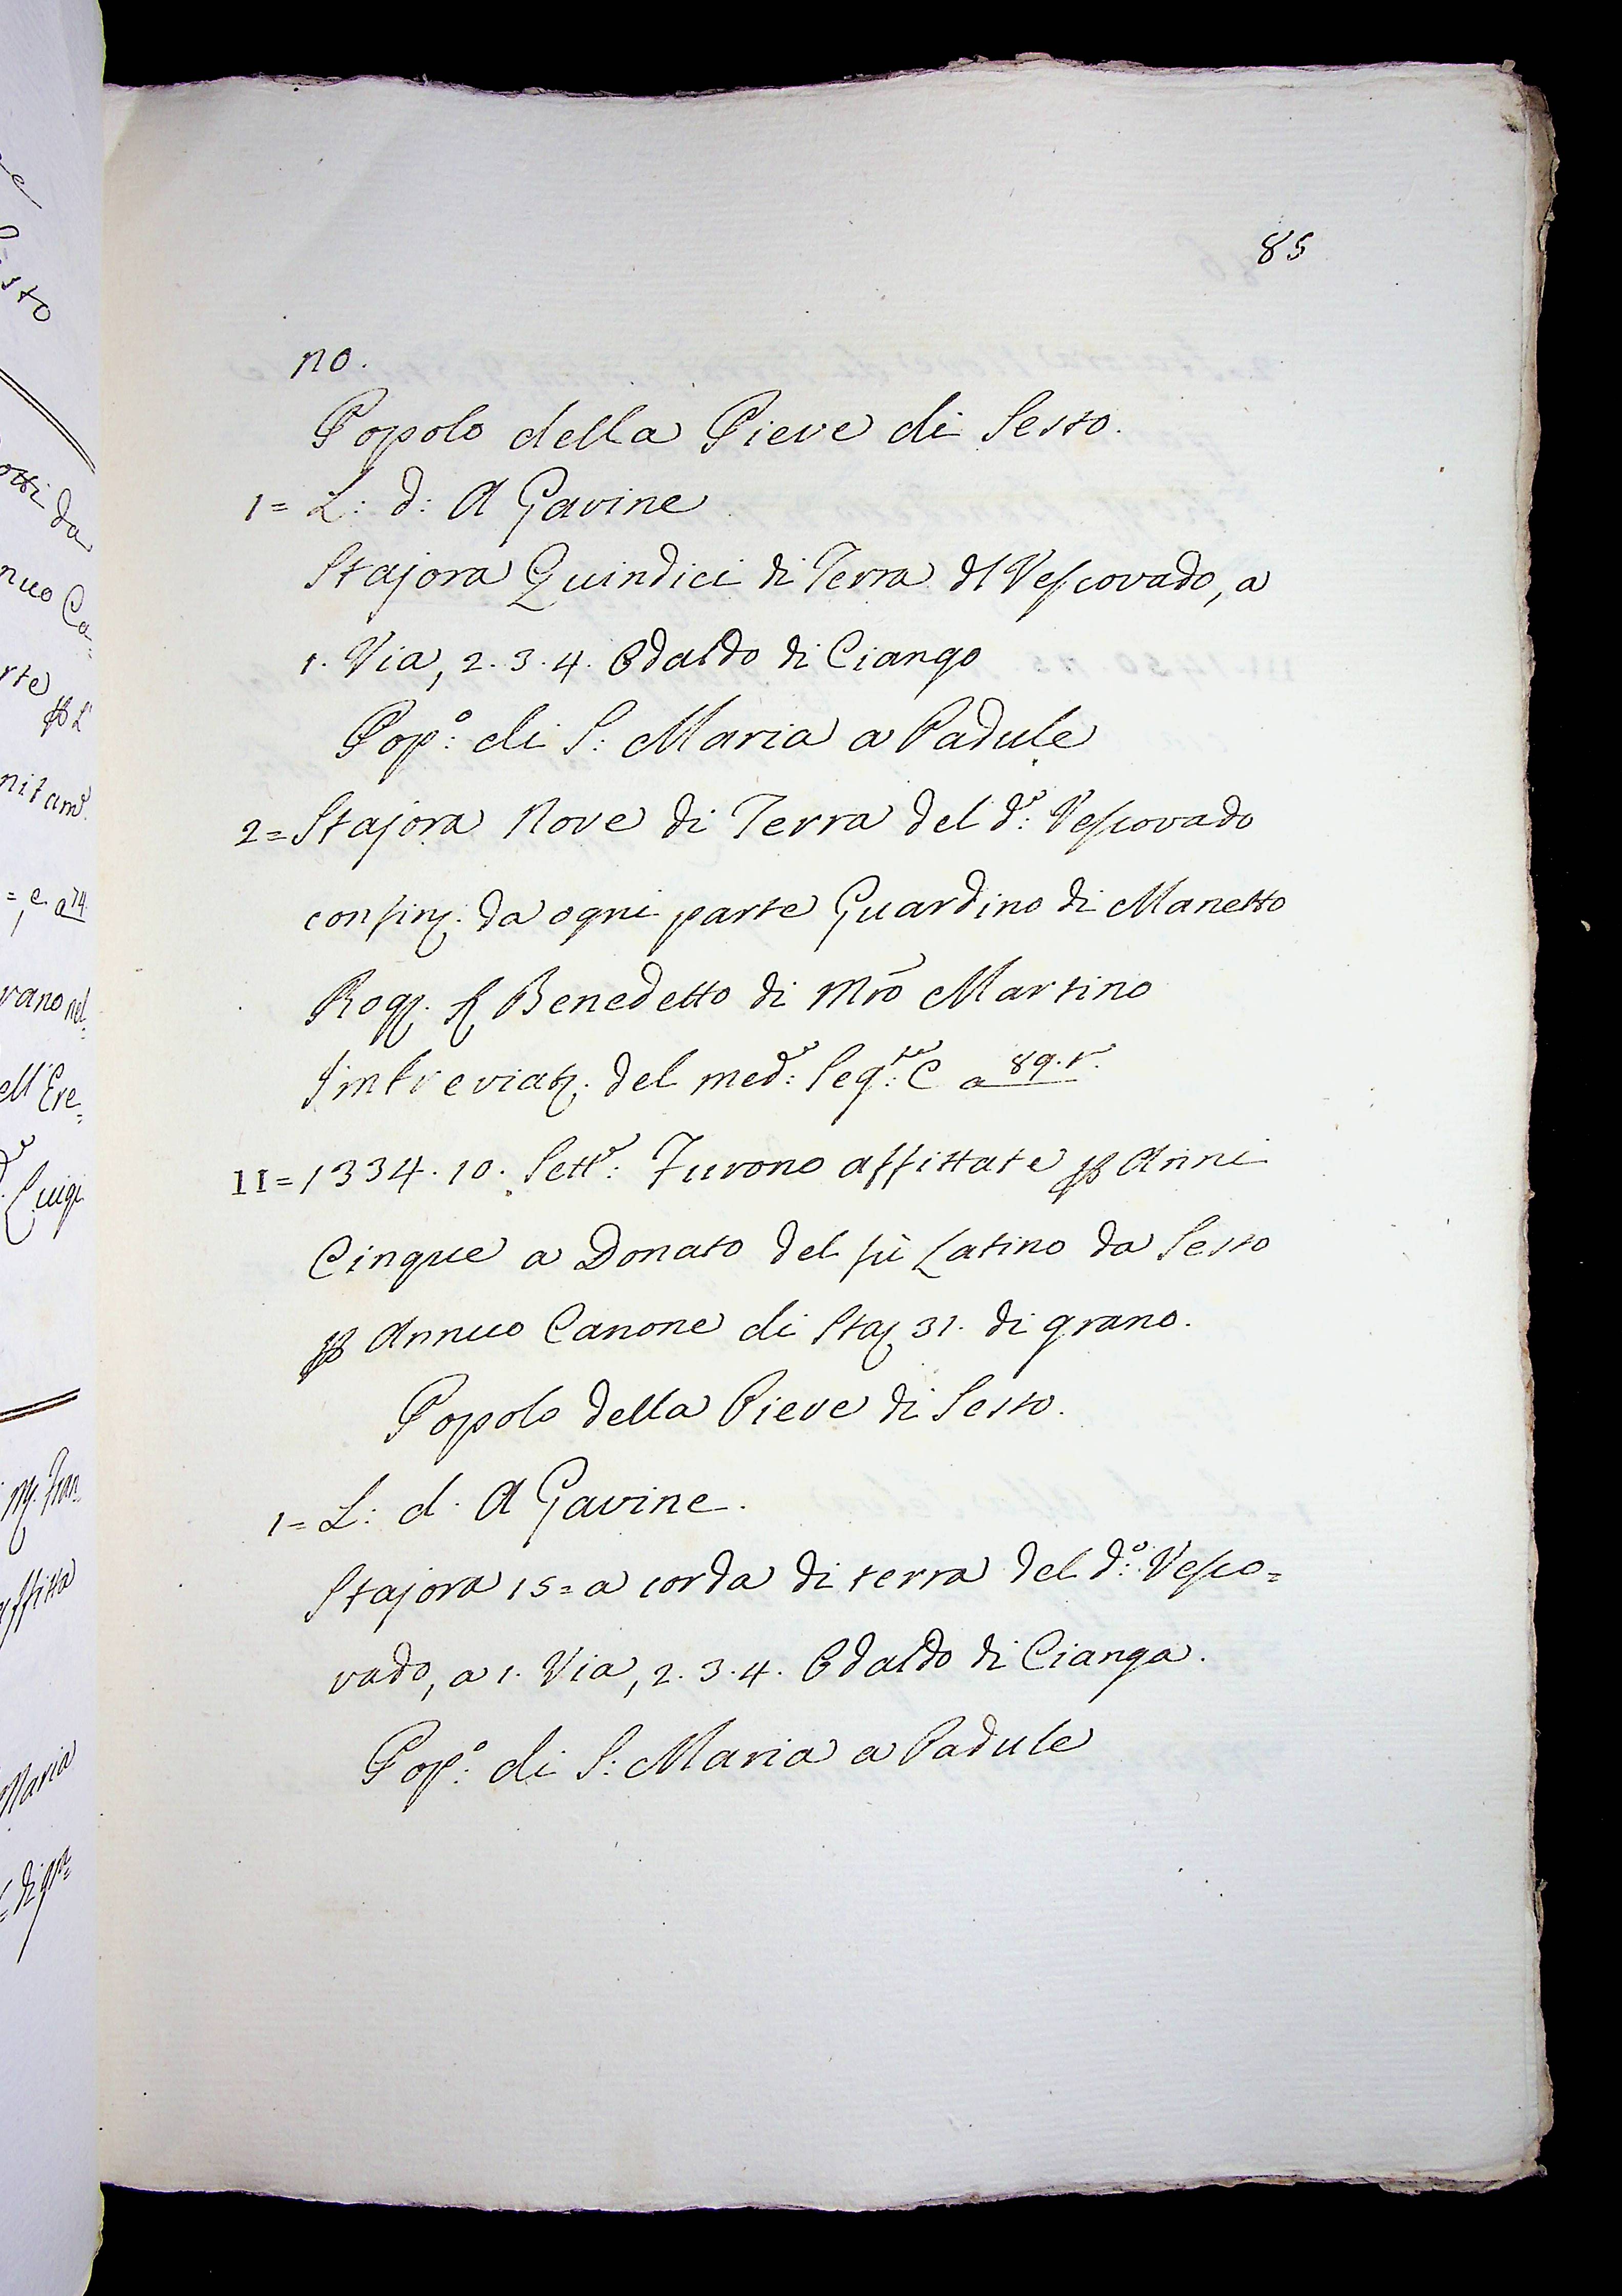 85
no.
Popolo della Pieve di Sesto.
1= L: d: A Gavine
Stajora Quindici di Terra dl Vescovado, a
1. Via, 2. 3. 4. Odaldo di Ciango
Pop:º di S: Maria a Padule
2= Stajora Nove di Terra del d:º Vescovado
confin. da ogni parte Guardino di Manetto
Rog. Benedetto di Mrõ Martino
Imbreviaz. del med:º Seg:te C a 89.r.
II= 1334. 10. Sett:e Furono affittate p Anni
Cinque a Donato del fù Latino da Sesto
p Annuo Canone di Staj 31. di grano.
Popolo della Pieve di Sesto.
1= L: d. A Gavine.
Stajora 15= a corda di terra del d:º Vesco=
vado, a 1. Via, 2. 3. 4. Odaldo di Cianga.
Pop:º di S: Maria a Padule